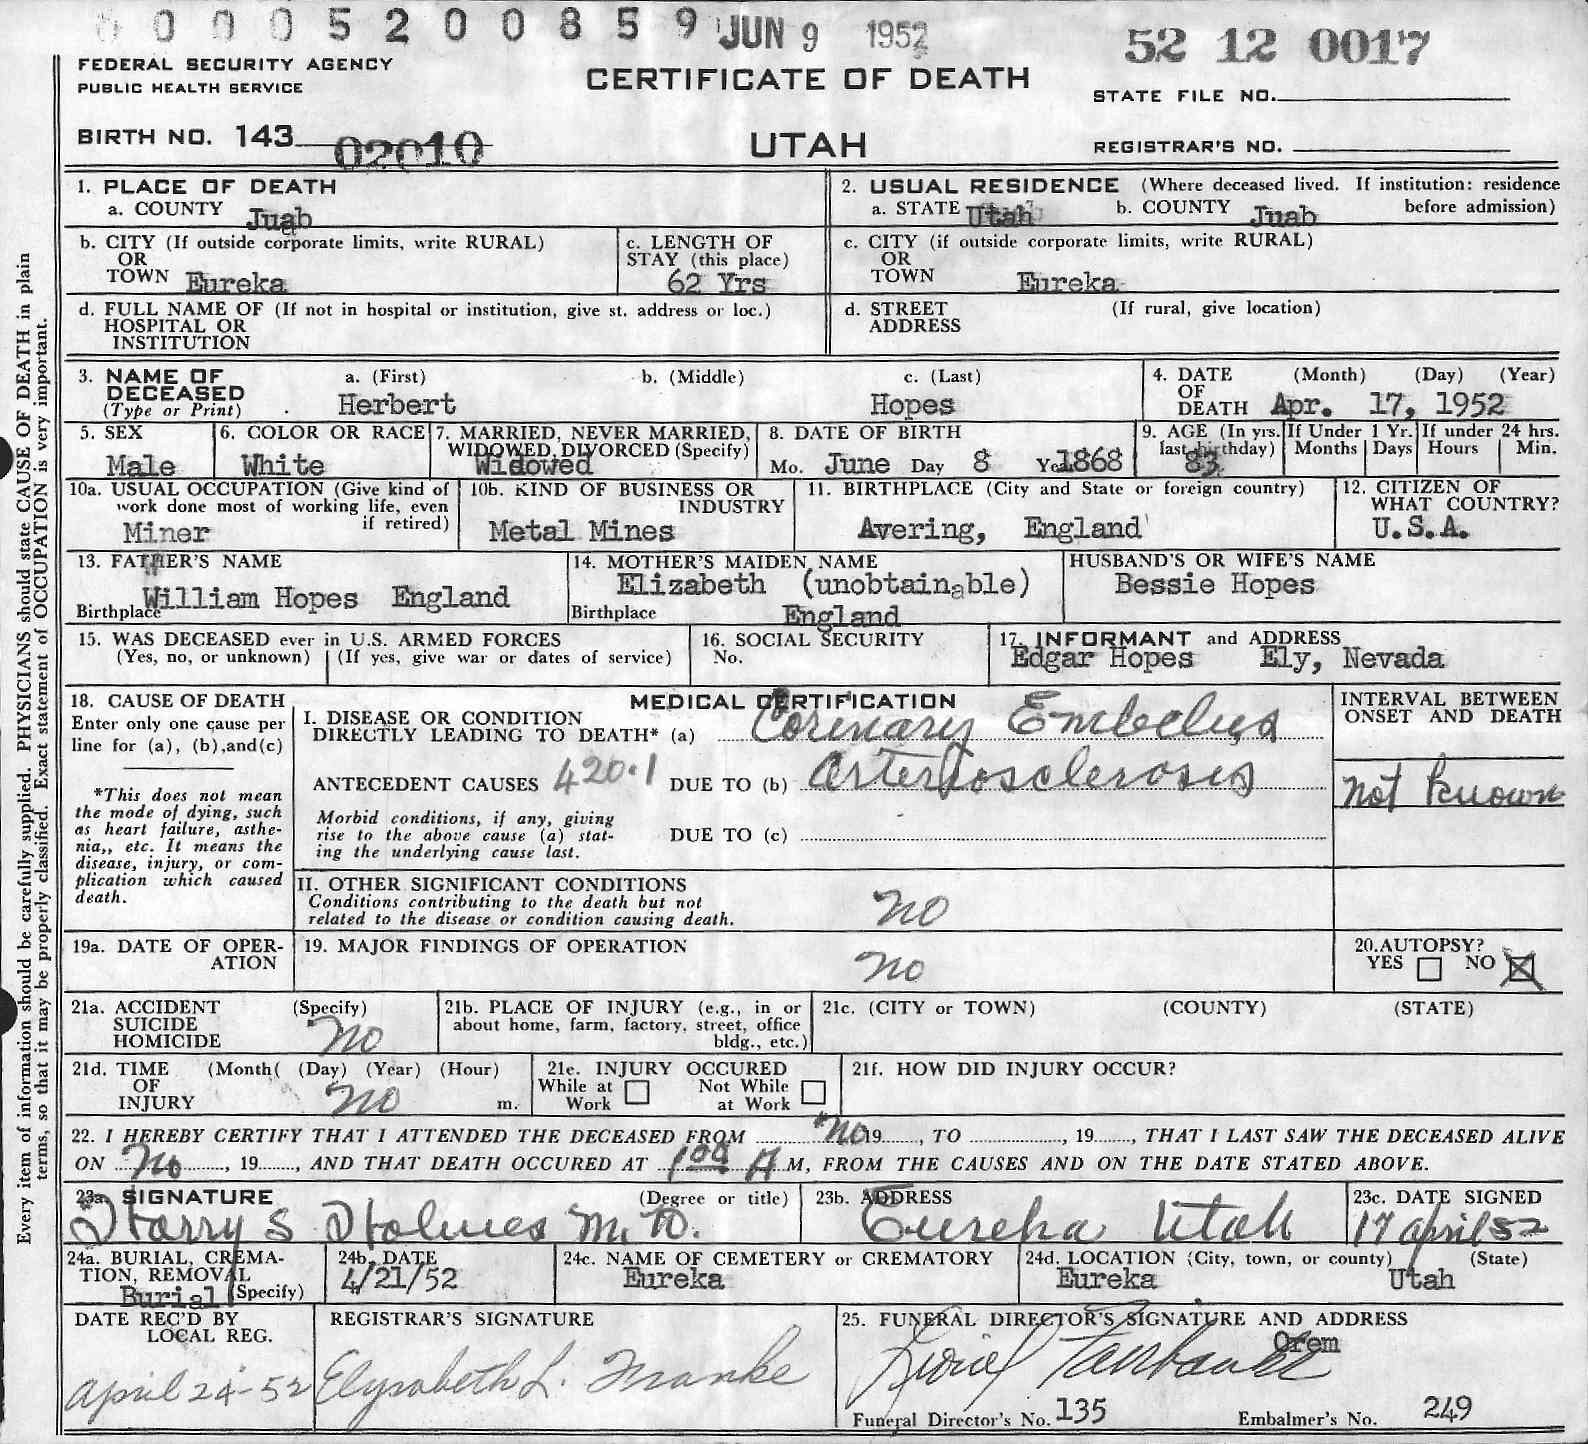 0 0 0 5 2 0 0 8 5 9 JUN 9 1952
52 12 0017
FEDERAL SECURITY AGENCY
PUBLIC HEALTH SERVICE
CERTIFICATE OF DEATH
STATE FILE NO.
BIRTH NO. 143 02010
UTAH
REGISTRAR'S NO.
1. PLACE OF DEATH
a. COUNTY Juab
2. USUAL RESIDENCE (Where deceased lived. If institution: residence before admission)
a. STATE Utah b. COUNTY Juab
b. CITY (If outside corporate limits, write RURAL)
OR
TOWN Eureka
c. LENGTH OF
STAY (this place)
62 Yrs
c. CITY (if outside corporate limits, write RURAL)
OR
TOWN Eureka
d. FULL NAME OF (If not in hospital or institution, give st. address or loc.)
HOSPITAL OR
INSTITUTION
d. STREET (If rural, give location)
ADDRESS
3. NAME OF
DECEASED
(Type or Print)
a. (First) b. (Middle) c. (Last)
Herbert Hopes
4. DATE (Month) (Day) (Year)
OF
DEATH Apr. 17, 1952
5. SEX
Male
6. COLOR OR RACE
White
7. MARRIED, NEVER MARRIED,
WIDOWED, DIVORCED (Specify)
Widowed
8. DATE OF BIRTH
Mo. June Day 8 Year 1868
9. AGE (In yrs. last birthday)
83
If Under 1 Yr.
Months Days
If under 24 hrs.
Hours Min.
10a. USUAL OCCUPATION (Give kind of
work done most of working life, even
if retired)
Miner
10b. KIND OF BUSINESS OR
INDUSTRY
Metal Mines
11. BIRTHPLACE (City and State or foreign country)
Avering, England
12. CITIZEN OF
WHAT COUNTRY?
U.S.A.
13. FATHER'S NAME
William Hopes England
Birthplace
14. MOTHER'S MAIDEN NAME
Elizabeth (unobtainable)
Birthplace England
HUSBAND'S OR WIFE'S NAME
Bessie Hopes
15. WAS DECEASED ever in U.S. ARMED FORCES
(Yes, no, or unknown) (If yes, give war or dates of service)
16. SOCIAL SECURITY
No.
17. INFORMANT and ADDRESS
Edgar Hopes Ely, Nevada
18. CAUSE OF DEATH
Enter only one cause per
line for (a), (b),and(c)
*This does not mean
the mode of dying, such
as heart failure, asthe-
nia,, etc. It means the
disease, injury, or com-
plication which caused
death.
MEDICAL CERTIFICATION
I. DISEASE OR CONDITION
DIRECTLY LEADING TO DEATH* (a) Coronary Embolus
ANTECEDENT CAUSES 420.1 DUE TO (b) Arteriosclerosis
Morbid conditions, if any, giving
rise to the above cause (a) stat-
ing the underlying cause last.
DUE TO (c)
INTERVAL BETWEEN
ONSET AND DEATH
not known
II. OTHER SIGNIFICANT CONDITIONS
Conditions contributing to the death but not
related to the disease or condition causing death.
no
19a. DATE OF OPER-
ATION
19. MAJOR FINDINGS OF OPERATION
no
20.AUTOPSY?
YES NO
21a. ACCIDENT (Specify)
SUICIDE
HOMICIDE
no
21b. PLACE OF INJURY (e.g., in or
about home, farm, factory, street, office
bldg., etc.)
21c. (CITY or TOWN) (COUNTY) (STATE)
21d. TIME (Month( (Day) (Year) (Hour)
OF
INJURY no m.
21e. INJURY OCCURED
While at Work Not While at Work
21f. HOW DID INJURY OCCUR?
22. I HEREBY CERTIFY THAT I ATTENDED THE DECEASED FROM no 19....., TO ............, 19......, THAT I LAST SAW THE DECEASED ALIVE
ON no, 19......, AND THAT DEATH OCCURED AT 1:00 A M, FROM THE CAUSES AND ON THE DATE STATED ABOVE.
23a. SIGNATURE (Degree or title)
Harry S Holmes M.D.
23b. ADDRESS
Eureka Utah
23c. DATE SIGNED
17 April 52
24a. BURIAL, CREMA-
TION, REMOVAL
Burial (Specify)
24b. DATE
4/21/52
24c. NAME OF CEMETERY or CREMATORY
Eureka
24d. LOCATION (City, town, or county) (State)
Eureka Utah
DATE REC'D BY
LOCAL REG.
April 24-52
REGISTRAR'S SIGNATURE
Elysabeth L. Franke
25. FUNERAL DIRECTOR'S SIGNATURE AND ADDRESS
Orem
Fairbanks
Funeral Director's No. 135 Embalmer's No. 249
Every item of information should be carefully supplied. PHYSICIANS should state CAUSE OF DEATH in plain
terms, so that it may be properly classified. Exact statement of OCCUPATION is very important.